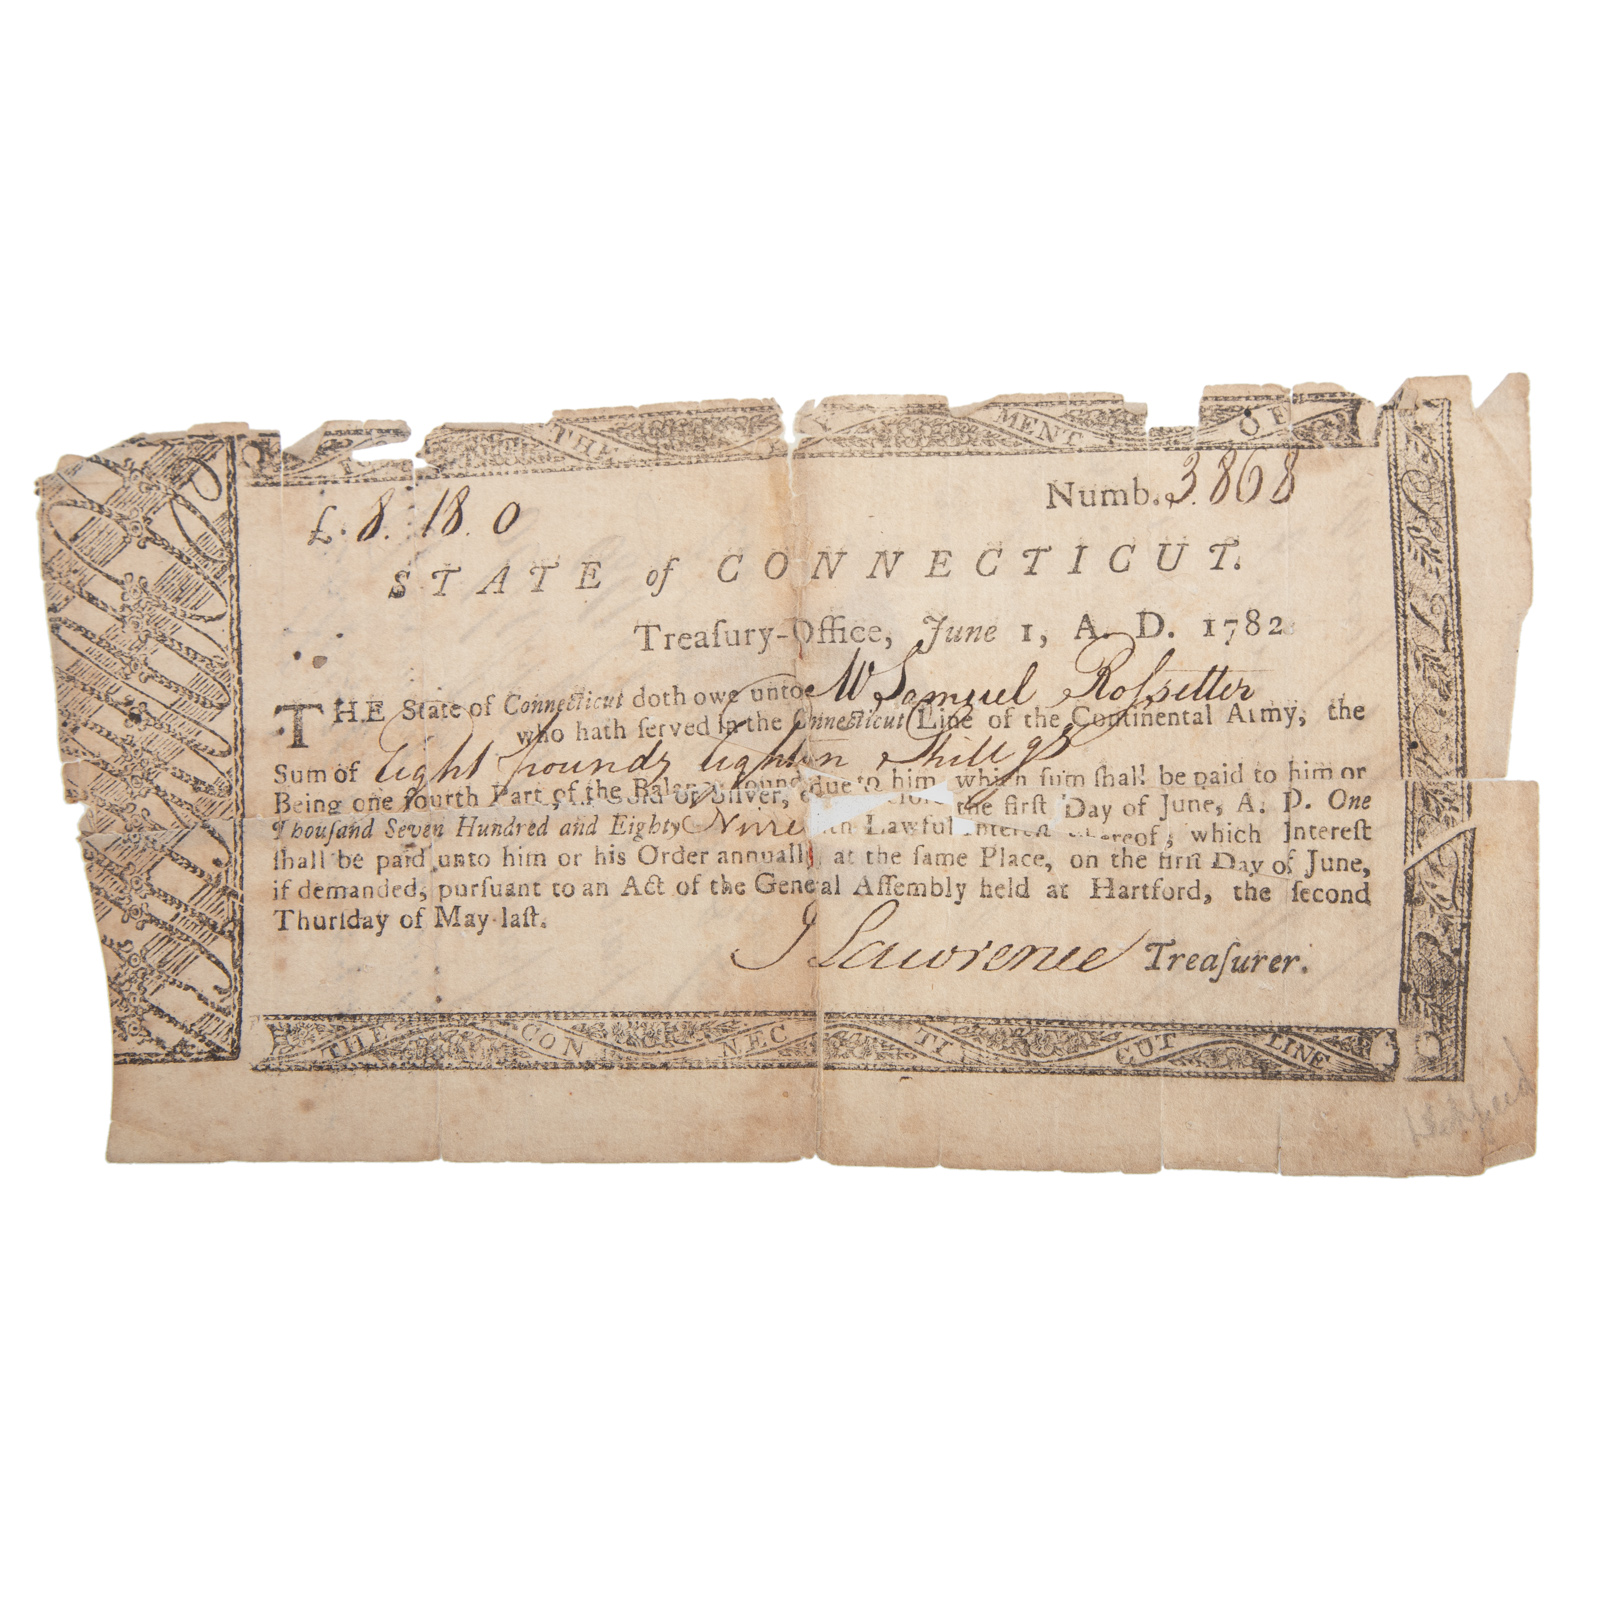 THE MENT OF
£. 8. 18. 0 Numb. 3868
STATE of CONNECTICUT.
Treaſury-Office, June 1, A. D. 1782
THE State of Connecticut doth owe unto Mr Samuel Roſsetter
who hath ſerved in the Connecticut Line of the Continental Army, the
Sum of Eight pounds Eighteen Shillgs
Being one fourth Part of the due to him, which ſum ſhall be paid to him or
or Silver, the firſt Day of June, A. D. One
Thouſand Seven Hundred and Eighty Nine Lawful Intereſt which Intereſt
ſhall be paid unto him or his Order annually, at the ſame Place, on the firſt Day of June,
if demanded, purſuant to an Act of the General Aſſembly held at Hartford, the ſecond
Thurſday of May laſt.
J Lawrence Treaſurer.
THE CON NEC TI CUT LINE